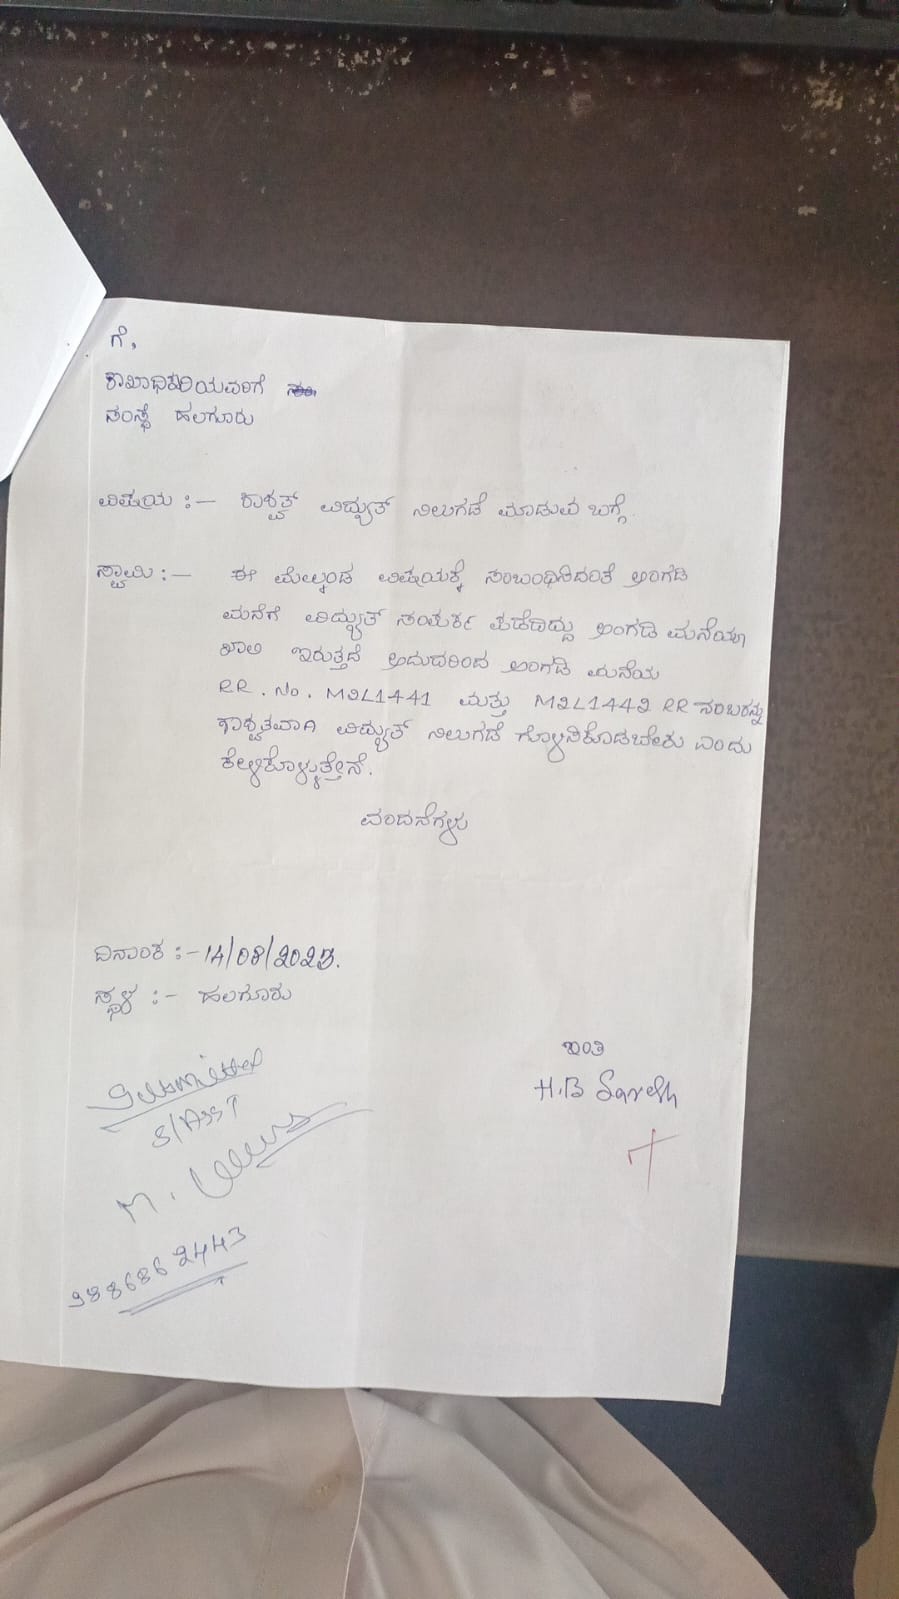 ಗೆ,
ಶಾಖಾಧಿಕಾರಿಯವರಿಗೆ
ಸಂಸ್ಥೆ ಹಲಗೂರು
ವಿಷಯ :- ಶಾಶ್ವತ್ ವಿದ್ಯುತ್ ನಿಲುಗಡೆ ಮಾಡುವ ಬಗ್ಗೆ.
ಸ್ವಾಮಿ :- ಈ ಮೇಲ್ಕಂಡ ವಿಷಯಕ್ಕೆ ಸಂಬಂಧಿಸಿದಂತೆ ಅಂಗಡಿ
ಮನೆಗೆ ವಿದ್ಯುತ್ ಸಂಪರ್ಕ ಪಡೆದಿದ್ದು ಅಂಗಡಿ ಮನೆಯೂ
ಖಾಲಿ ಇರುತ್ತದೆ ಆದುದರಿಂದ ಅಂಗಡಿ ಮನೆಯ
RR. No. M2L1441 ಮತ್ತು M2L1442 RR ನಂಬರನ್ನು
ಶಾಶ್ವತವಾಗಿ ವಿದ್ಯುತ್ ನಿಲುಗಡೆ ಗ್ಯೊಳಿಸಿಕೊಡಬೇಕು ಎಂದು
ಕೇಳ್ಳಿಕೊಳ್ಳುತ್ತೇನೆ.
ವಂದನೆಗಳು
ದಿನಾಂಕ :- 14/08/2023.
ಸ್ಥಳ :- ಹಲಗೂರು
ಇಂತಿ
H.B Suresh
S/ASST
9886862443